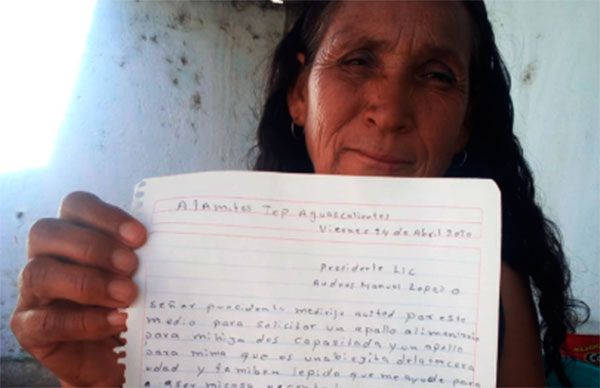 Alamitos Tep Aguascalientes
Viernes 24 de Abril 2020
Precidente LIC
Andres Manuel Lopez O
señor precidente medirijo austed por este
medio para solicitar un apollo alimentario
para mihija dos capasilada y un apollo
para mima que es unabiegita delatercera
edad y tamibien lepido que me ayude para
a aser micasa